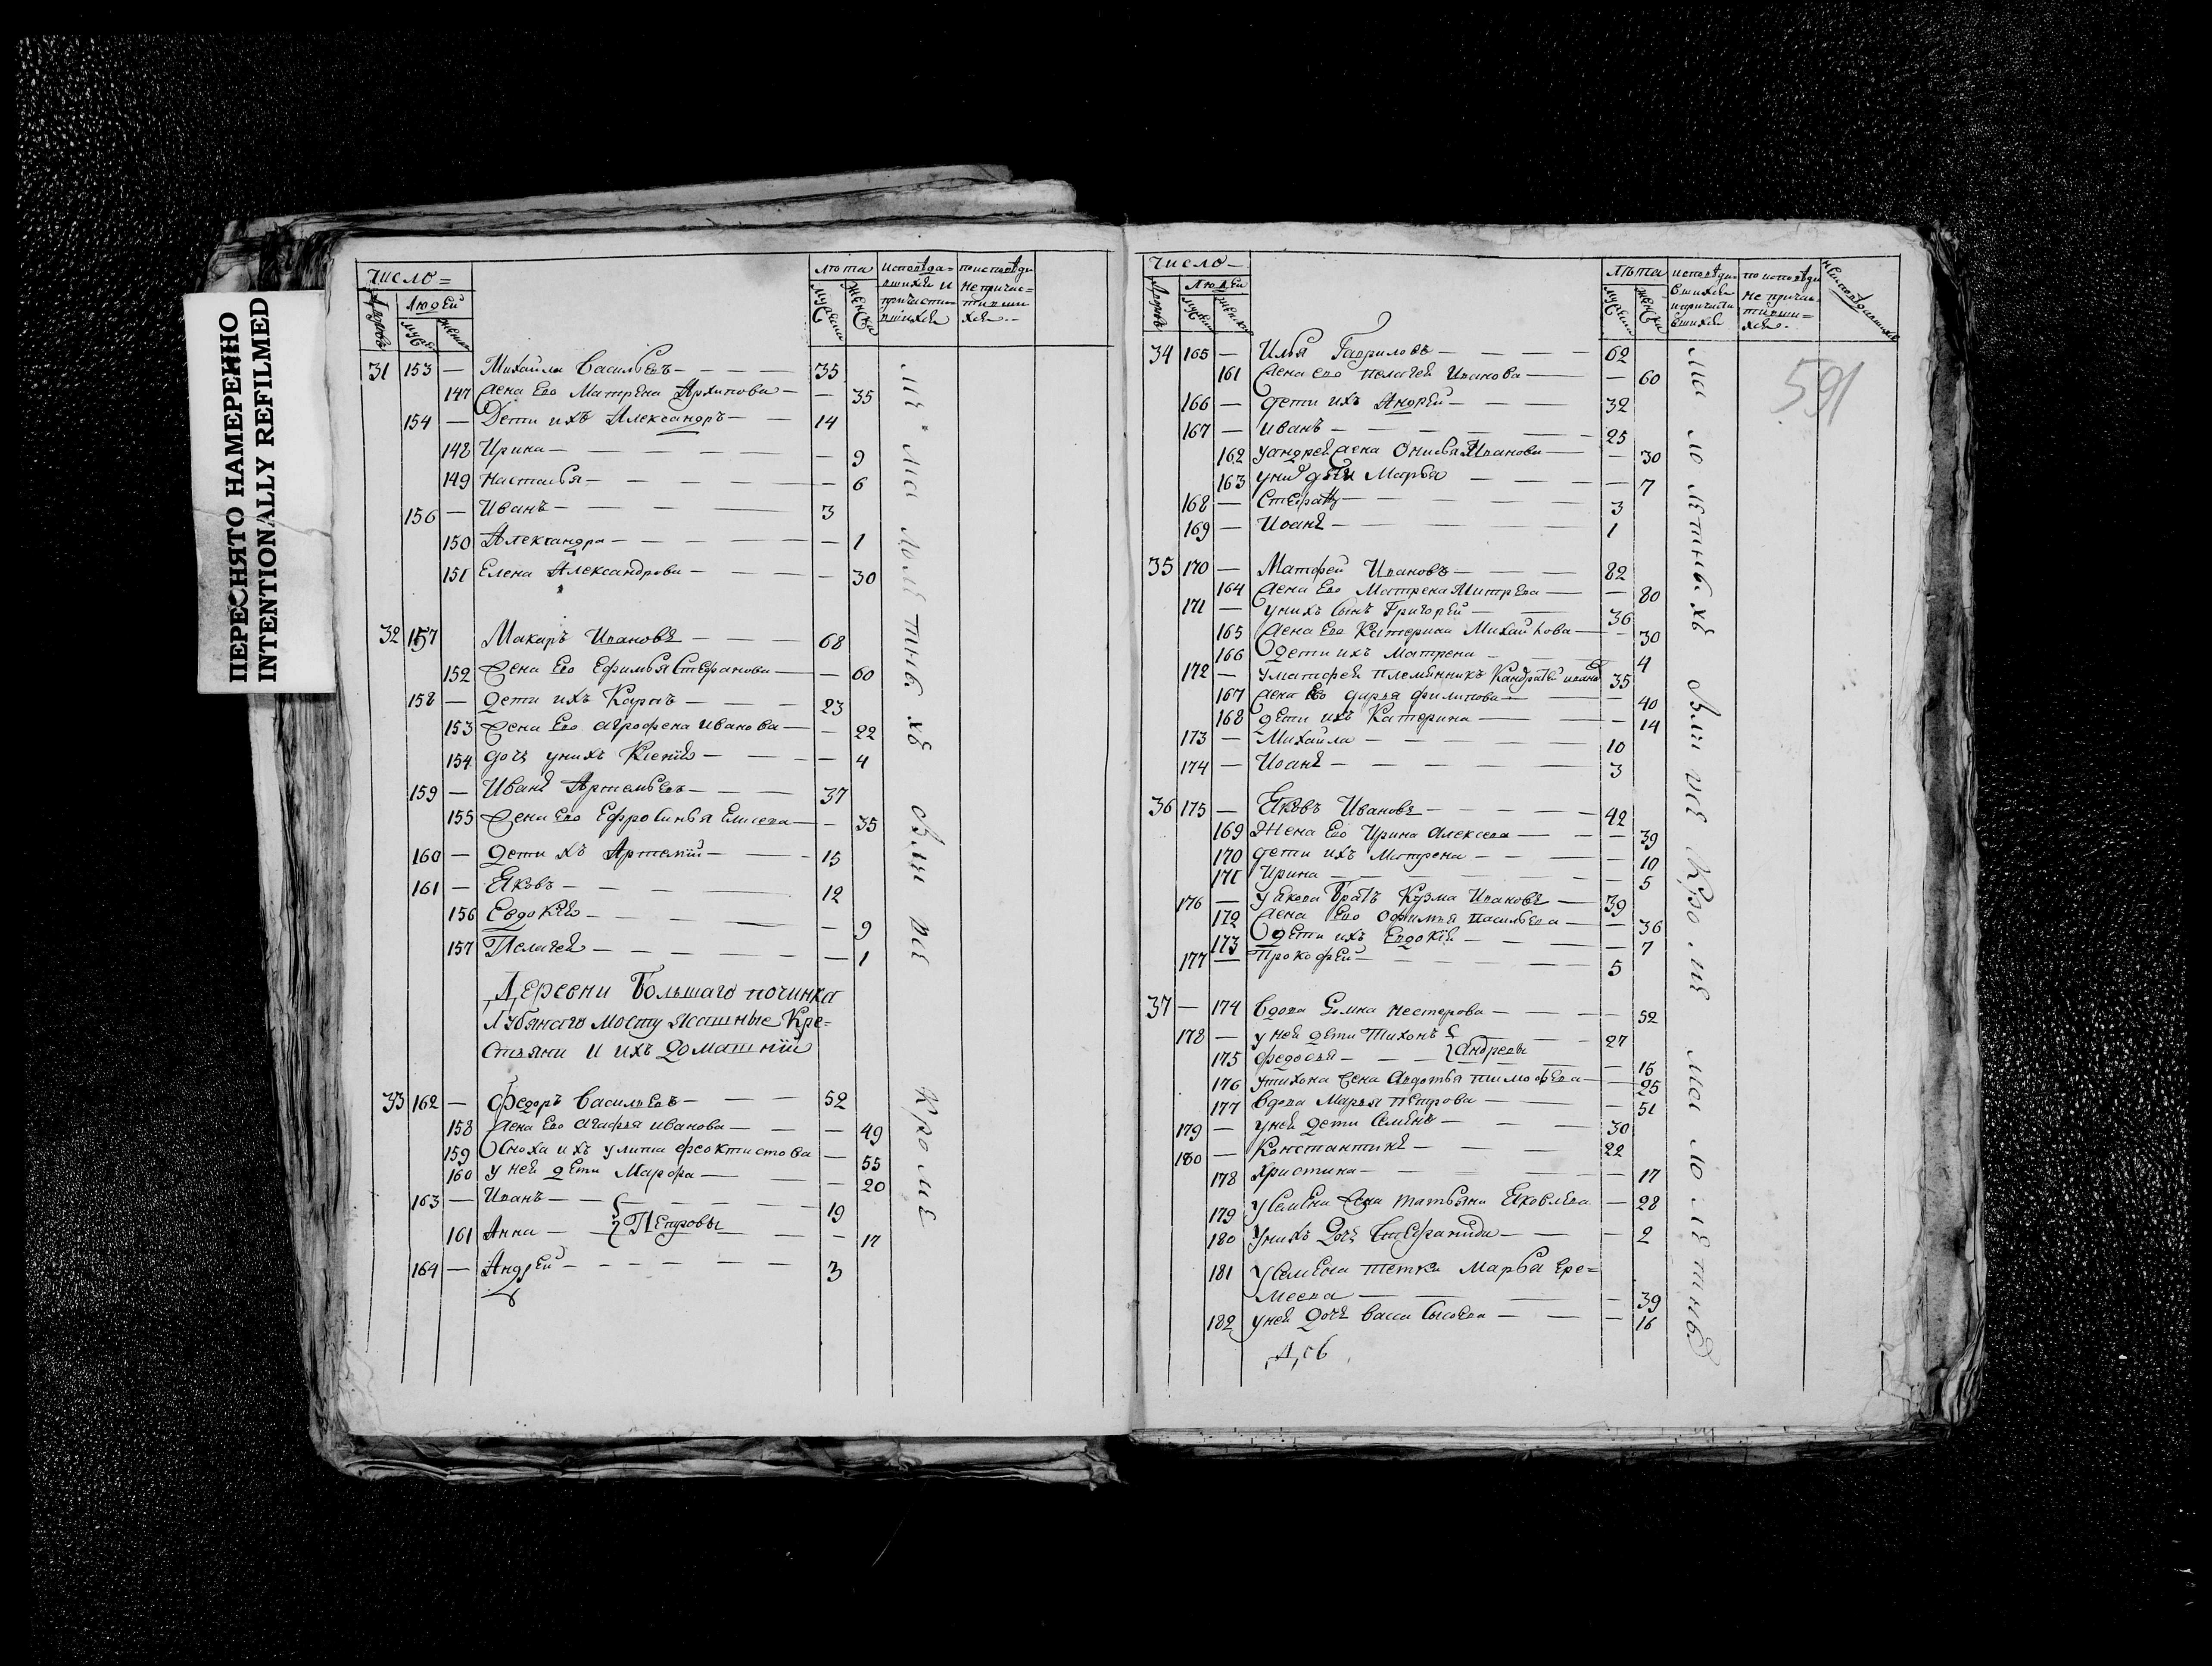 ПЕРЕСНЯТО НАМЕРЕННО
INTENTIONALLY REFILMED
Число =
Дворовъ
Людей
Лѣта
исповѣда=
вшихся и
причасти=
вшихся
поисповѣди
не причас=
тивши
хся
31 153 — Михайла Васильевъ — 35
147 Жена Ево Матрена Архипова — 35
154 — Дети ихъ Александръ — 14
148 Ирина — 9
149 Настасья — 6
156 — Иванъ — 3
150 Александра — 1
151 Елена Александрова — 30
32 157 Макаръ Ивановъ — 68
152 Жена Ево Ефимья Стефанова — 60
158 — Дети ихъ Карпъ — 23
153 Жена Ево агрофена Иванова — 22
154 дочь унихъ Ксения — 4
159 — Иванъ Артемьевъ — 37
155 Жена Ево Ефросинья Елисева — 35
160 — Дети хъ Артемий — 15
161 — Яковъ — 12
156 Евдокия — 9
157 Пелагея — 1
Деревни Большаго починка
Лубянаго мосту Ясашные Кре=
стьяни и ихъ Домашнии
33 162 — Федоръ Васильевъ — 52
158 Жена Ево агафья иванова — 49
159 Сноха ихъ улита феоктистова — 55
160 у ней дети Марфа — 20
163 — Иванъ — 19
161 Анна — } Петровы — 17
164 — Андрей — 3
Число —
Дворовъ
Людей
Лѣта
исповѣда=
вшихся
ипричасти
вшихся
по исповѣди
не причас
тивши=
хся
неисповѣдавшихся
591
34 165 — Илья Гавриловъ — 62
161 Жена ево пелагея Иванова — 60
166 — дети ихъ Андрей — 32
167 — иванъ — 25
162 уандрея Жена Онисья Иванова — 30
163 унихъ дети Марья — 7
168 — Стефанъ — 3
169 — Иоанъ — 1
35 170 — Матфей Ивановъ — 82
164 Жена Ево Матрена Митрева — 80
171 — унихъ сынъ Григорей — 36
165 Жена Ево Катерина Михайлова — 30
166 дети ихъ Матрена — 4
172 — Уматфея племянникъ Кандратей 35
167 Жена Ево дарья филипова — 40
168 дети ихъ Катерина — 14
173 — Михайла — 10
174 — Иоанъ — 3
36 175 — Яковъ Ивановъ — 42
169 Жена Ево Ирина алексева — 39
170 дети ихъ Матрена — 10
171 Ирина — 5
176 — Уякова Братъ Кузма Ивановъ — 39
172 Жена Ево Офимья васильева — 36
173 дети ихъ Евдокия — 7
177 — Прокофей — 5
37 — 174 Вдова нестерова — 52
178 — у ней дети Тихонъ — 27
175 федосья — } Андреевы — 15
176 утихона Жена авдотья тимофева — 25
177 Вдова Марья петрова — 51
179 — уней дети Семенъ — 30
180 — Константинъ — 22
178 Христина — 17
179 Усемена Жена татьяна Яковлева — 28
180 Унихъ Дочь Стефанида — 2
181 Усемена тетка Марья Ере=
меева — 39
182 уней дочь васса Сысоева — 16